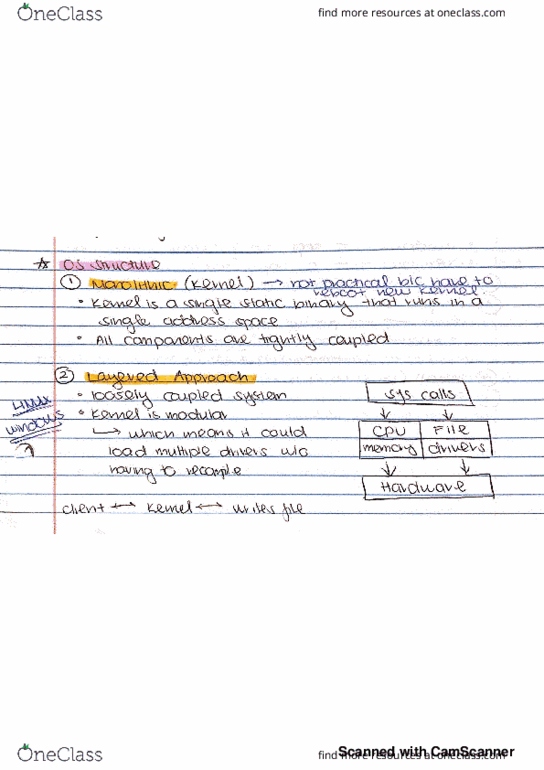 OneClass
find more resources at oneclass.com
☆ O.S Structure
① Monolithic (Kernel) → not practical b/c have to
reboot new kernel.
• Kernel is a single static binary that runs in a
single address space
• All components are tightly coupled
② Layered Approach
• loosely coupled system
• Kernel is modular
↳ which means it could
load multiple drivers w/o
having to recompile
Linux
Windows
sys calls
CPU File
memory drivers
Hardware
client ↔ Kernel ↔ writes file
OneClass
find more resources at oneclass.com
Scanned with CamScanner